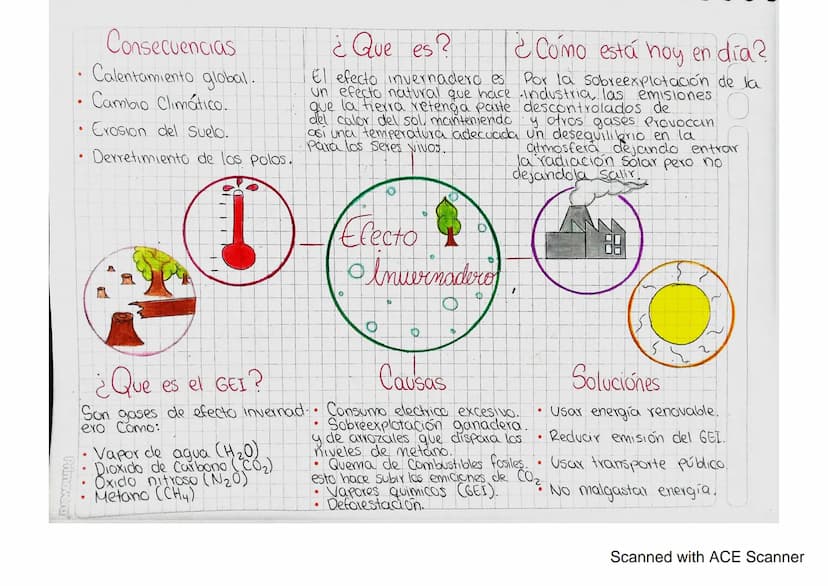 Consecuencias
• Calentamiento global.
• Cambio Climático.
• Erosion del Suelo.
• Derretimiento de los polos.
¿Que es?
El efecto invernadero es
un efecto natural que hace
que la tierra retenga parte
del calor del sol, manteniendo
así una temperatura adecuada
para los seres vivos.
¿Cómo está hoy en día?
Por la sobreexplotación de la
industria, las emisiones
descontrolados de
y otros gases provocan
un desequilibrio en la
atmosfera dejando entrar
la radiación solar pero no
dejandola salir.
Efecto
Invernadero
¿Que es el GEI?
Son gases de efecto invernad-
ero como:
• Vapor de agua (H2O)
• Dioxido de Carbono (CO2)
• Óxido nitroso (N2O)
• Metano (CH4)
Causas
• Consumo electrico excesivo.
• Sobreexplotación ganadera
y de arrozales que dispara los
niveles de metano.
• Quema de combustibles fosiles.
esto hace subir las emiciones de CO2
• Vapores químicos (GEI).
• Deforestación.
Soluciónes
• Usar energía renovable.
• Reducir emisión del GEI.
• Usar transporte público
• No malgastar energía.
Scanned with ACE Scanner